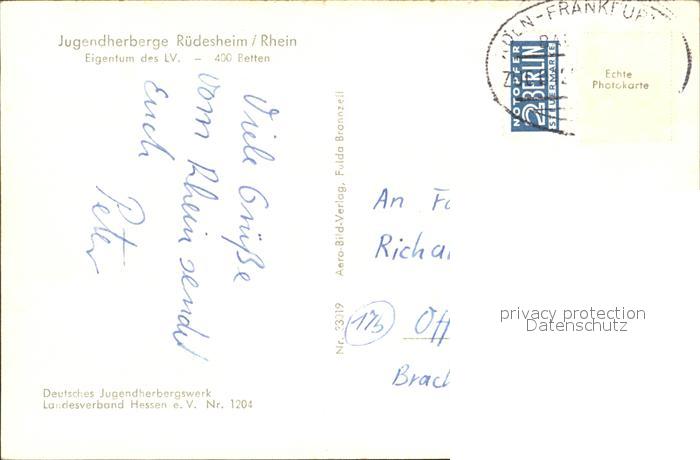 Jugendherberge Rüdesheim / Rhein
Eigentum des LV. – 400 Betten
Viele Grüße
vom Rhein sendet
Euch
Peter
Deutsches Jugendherbergswerk
Landesverband Hessen e. V. Nr. 1204
Nr. 33019 Aero-Bild-Verlag, Fulda Bronnzell
KÖLN-FRANKFURT
NOTOPFER
2 BERLIN
STEUERMARKE
Echte
Photokarte
An Fa
Richa
17b Öff
Brach
privacy protection
Datenschutz